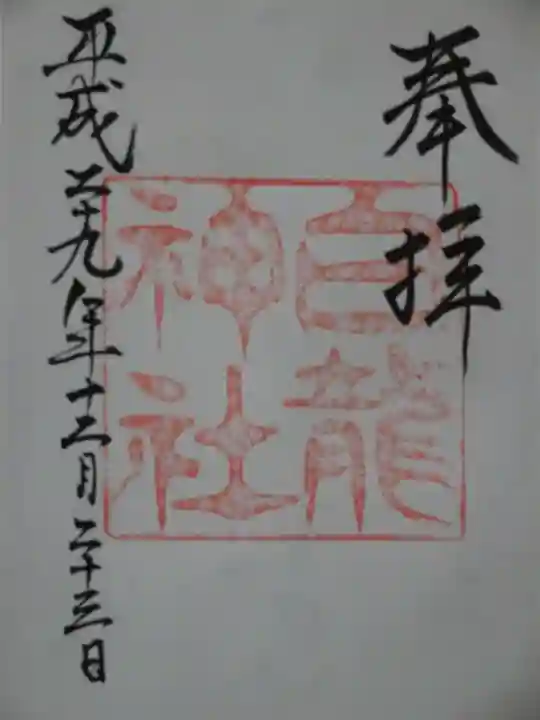 奉拝
白龍
神社
平成二十九年十二月二十三日